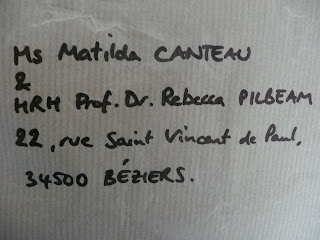 Ms Matilda CANTEAU
&
HRH Prof. Dr. Rebecca PILBEAM
22, rue Saint Vincent de Paul,
34500 BÉZIERS.